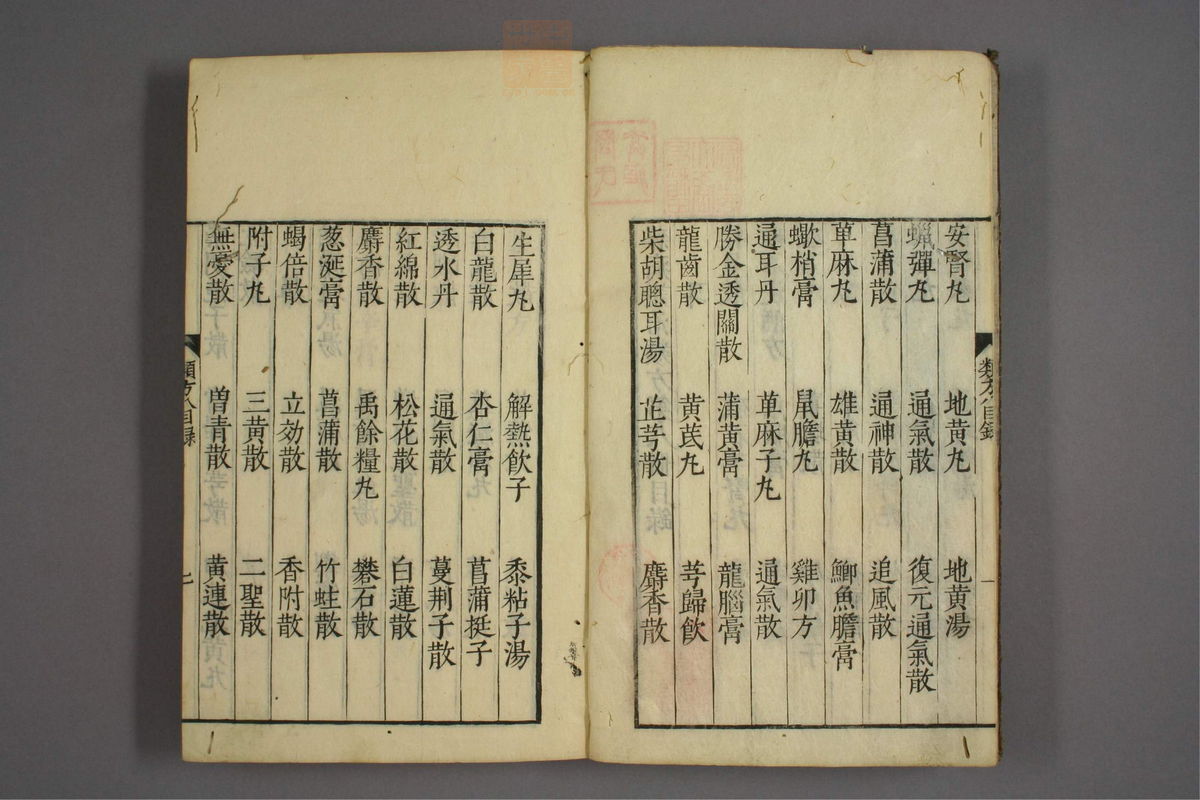 安腎丸 地黄丸 地黄湯
蠟彈丸 通氣散 復元通氣散
菖蒲散 通神散 追風散
草麻丸 雄黄散 鯽魚膽膏
蠍梢膏 鼠膽丸 雞卵方
通耳丹 草麻子丸 通氣散
勝金透關散 蒲黄膏 龍腦膏
龍齒散 黄芪丸 芎歸飲
柴胡聰耳湯 芷芎散 麝香散
類方八目錄 一
生犀丸 解熱飲子 黍粘子湯
白龍散 杏仁膏 菖蒲挺子
透水丹 通氣散 蔓荆子散
紅綿散 松花散 白蓮散
麝香散 禹餘糧丸 礬石散
葱涎膏 菖蒲散 竹蛀散
蝎倍散 立効散 香附散
附子丸 三黄散 二聖散
無憂散 曽青散 黄連散
類方八目錄